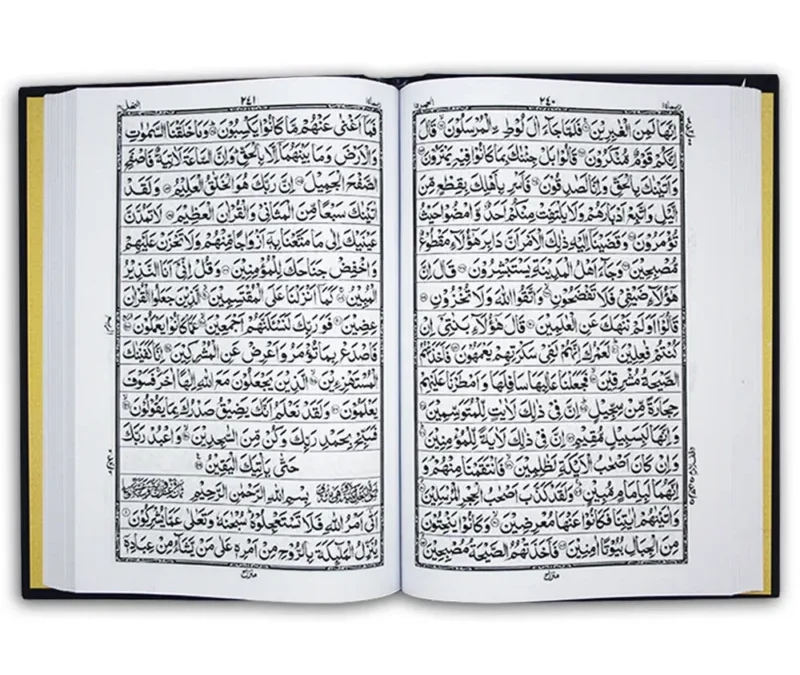 ربما ١٤ ٢٤٠ الحجر ١٥
اِنَّهَا لَمِنَ الْغٰبِرِيْنَ ۝ فَلَمَّا جَآءَ اٰلَ لُوْطِ ِۨالْمُرْسَلُوْنَ ۝ قَالَ
اِنَّكُمْ قَوْمٌ مُّنْكَرُوْنَ ۝ قَالُوْا بَلْ جِئْنٰكَ بِمَا كَانُوْا فِيْهِ يَمْتَرُوْنَ ۝
وَاَتَيْنٰكَ بِالْحَقِّ وَاِنَّا لَصٰدِقُوْنَ ۝ فَاَسْرِ بِاَهْلِكَ بِقِطْعٍ مِّنَ
الَّيْلِ وَاتَّبِعْ اَدْبَارَهُمْ وَلَا يَلْتَفِتْ مِنْكُمْ اَحَدٌ وَّامْضُوْا حَيْثُ
تُؤْمَرُوْنَ ۝ وَقَضَيْنَآ اِلَيْهِ ذٰلِكَ الْاَمْرَ اَنَّ دَابِرَ هٰٓؤُلَآءِ مَقْطُوْعٌ
مُّصْبِحِيْنَ ۝ وَجَآءَ اَهْلُ الْمَدِيْنَةِ يَسْتَبْشِرُوْنَ ۝ قَالَ اِنَّ
هٰٓؤُلَآءِ ضَيْفِيْ فَلَا تَفْضَحُوْنِ ۝ وَاتَّقُوا اللّٰهَ وَلَا تُخْزُوْنِ ۝
قَالُوْٓا اَوَلَمْ نَنْهَكَ عَنِ الْعٰلَمِيْنَ ۝ قَالَ هٰٓؤُلَآءِ بَنٰتِيْٓ اِنْ
كُنْتُمْ فٰعِلِيْنَ ۝ لَعَمْرُكَ اِنَّهُمْ لَفِيْ سَكْرَتِهِمْ يَعْمَهُوْنَ ۝ فَاَخَذَتْهُمُ
الصَّيْحَةُ مُشْرِقِيْنَ ۝ فَجَعَلْنَا عَالِيَهَا سَافِلَهَا وَاَمْطَرْنَا عَلَيْهِمْ
حِجَارَةً مِّنْ سِجِّيْلٍ ۝ اِنَّ فِيْ ذٰلِكَ لَاٰيٰتٍ لِّلْمُتَوَسِّمِيْنَ ۝
وَاِنَّهَا لَبِسَبِيْلٍ مُّقِيْمٍ ۝ اِنَّ فِيْ ذٰلِكَ لَاٰيَةً لِّلْمُؤْمِنِيْنَ ۝
وَاِنْ كَانَ اَصْحٰبُ الْاَيْكَةِ لَظٰلِمِيْنَ ۝ فَانْتَقَمْنَا مِنْهُمْ وَ
اِنَّهُمَا لَبِاِمَامٍ مُّبِيْنٍ ۝ وَلَقَدْ كَذَّبَ اَصْحٰبُ الْحِجْرِ الْمُرْسَلِيْنَ ۝
وَاٰتَيْنٰهُمْ اٰيٰتِنَا فَكَانُوْا عَنْهَا مُعْرِضِيْنَ ۝ وَكَانُوْا يَنْحِتُوْنَ
مِنَ الْجِبَالِ بُيُوْتًا اٰمِنِيْنَ ۝ فَاَخَذَتْهُمُ الصَّيْحَةُ مُصْبِحِيْنَ ۝
ربما ١٤ ٢٤١ النحل
فَمَآ اَغْنٰى عَنْهُمْ مَّا كَانُوْا يَكْسِبُوْنَ ۝ وَمَا خَلَقْنَا السَّمٰوٰتِ
وَالْاَرْضَ وَمَا بَيْنَهُمَآ اِلَّا بِالْحَقِّ وَاِنَّ السَّاعَةَ لَاٰتِيَةٌ فَاصْفَحِ
الصَّفْحَ الْجَمِيْلَ ۝ اِنَّ رَبَّكَ هُوَ الْخَلّٰقُ الْعَلِيْمُ ۝ وَلَقَدْ
اٰتَيْنٰكَ سَبْعًا مِّنَ الْمَثَانِيْ وَالْقُرْاٰنَ الْعَظِيْمَ ۝ لَا تَمُدَّنَّ
عَيْنَيْكَ اِلٰى مَا مَتَّعْنَا بِهٖٓ اَزْوَاجًا مِّنْهُمْ وَلَا تَحْزَنْ عَلَيْهِمْ
وَاخْفِضْ جَنَاحَكَ لِلْمُؤْمِنِيْنَ ۝ وَقُلْ اِنِّيْٓ اَنَا النَّذِيْرُ
الْمُبِيْنُ ۝ كَمَآ اَنْزَلْنَا عَلَى الْمُقْتَسِمِيْنَ ۝ الَّذِيْنَ جَعَلُوا الْقُرْاٰنَ
عِضِيْنَ ۝ فَوَرَبِّكَ لَنَسْئَلَنَّهُمْ اَجْمَعِيْنَ ۝ عَمَّا كَانُوْا يَعْمَلُوْنَ ۝
فَاصْدَعْ بِمَا تُؤْمَرُ وَاَعْرِضْ عَنِ الْمُشْرِكِيْنَ ۝ اِنَّا كَفَيْنٰكَ
الْمُسْتَهْزِءِيْنَ ۝ الَّذِيْنَ يَجْعَلُوْنَ مَعَ اللّٰهِ اِلٰهًا اٰخَرَ فَسَوْفَ
يَعْلَمُوْنَ ۝ وَلَقَدْ نَعْلَمُ اَنَّكَ يَضِيْقُ صَدْرُكَ بِمَا يَقُوْلُوْنَ ۝
فَسَبِّحْ بِحَمْدِ رَبِّكَ وَكُنْ مِّنَ السّٰجِدِيْنَ ۝ وَاعْبُدْ رَبَّكَ
حَتّٰى يَاْتِيَكَ الْيَقِيْنُ ۝
بِسْمِ اللّٰهِ الرَّحْمٰنِ الرَّحِيْمِ
اَتٰٓى اَمْرُ اللّٰهِ فَلَا تَسْتَعْجِلُوْهُ سُبْحٰنَهٗ وَتَعٰلٰى عَمَّا يُشْرِكُوْنَ ۝
يُنَزِّلُ الْمَلٰٓئِكَةَ بِالرُّوْحِ مِنْ اَمْرِهٖ عَلٰى مَنْ يَّشَآءُ مِنْ عِبَادِهٖٓ